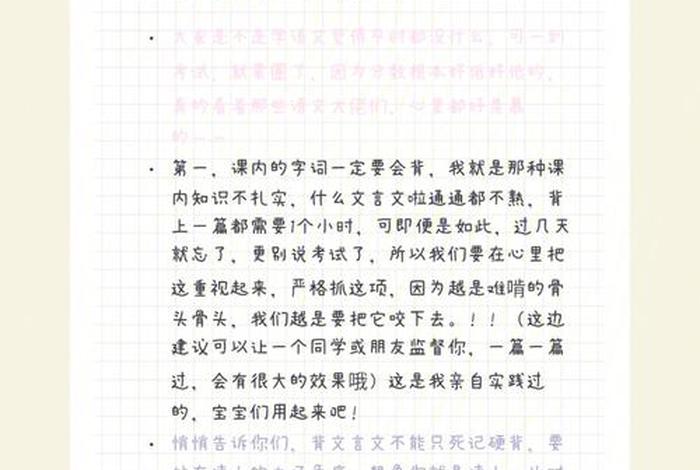 · 大家是不是学语文觉得平时都没什么，可一到
考试，就蒙圈了，因为分数根本好低好低的，
真的看着那些语文大佬们，心里都好羡慕
的——
· 第一，课内的字词一定要会背，我就是那种课
内知识不扎实，什么文言文啦通通都不熟，背
上一篇都需要1个小时，可即便是如此，过几天
就忘了，更别说考试了，所以我们要在心里把
这重视起来，严格抓这项，因为越是难啃的骨
头骨头，我们越是要把它咬下去。！！（这边
建议可以让一个同学或朋友监督你，一篇一篇
过，会有很大的效果哦）这是我亲自实践过
的，宝宝们用起来吧！
· 悄悄告诉你们，背文言文不能只死记硬背，要